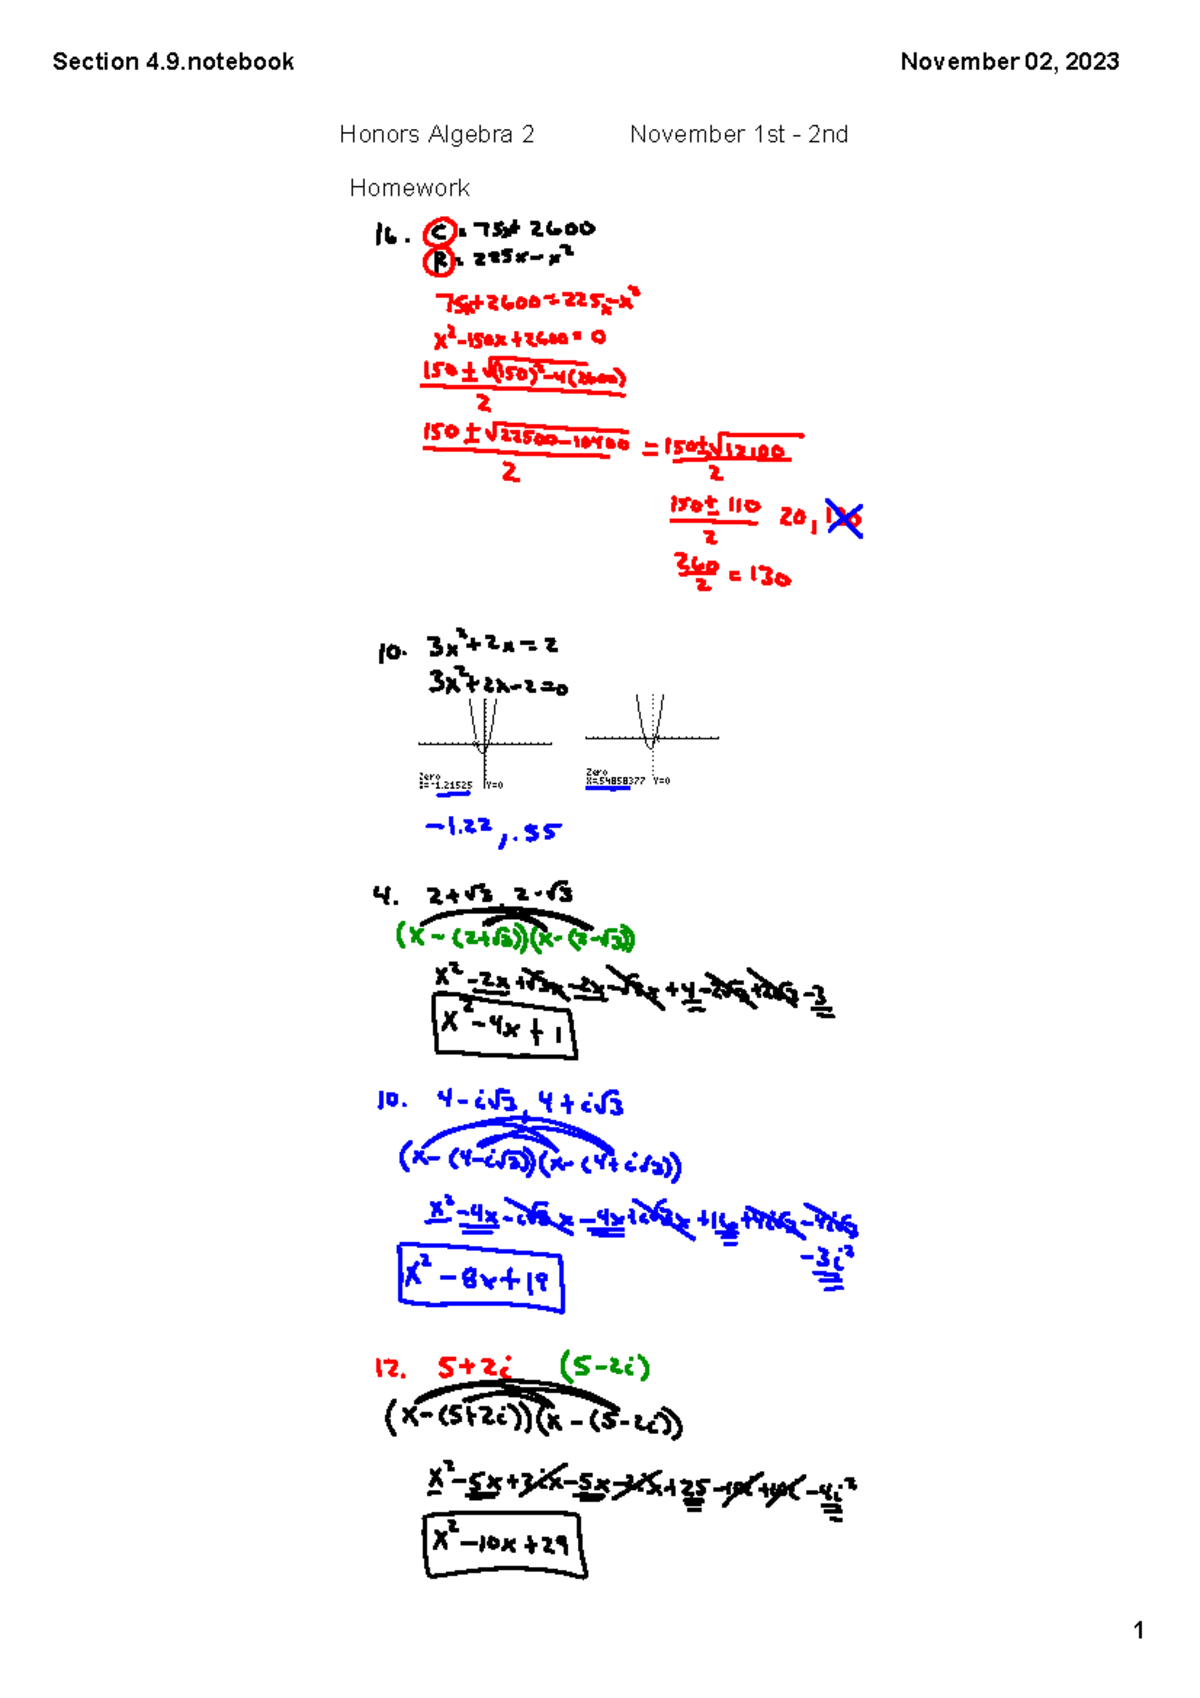 Section 4.9.notebook November 02, 2023
Honors Algebra 2 November 1st - 2nd
Homework
16. C = 75x + 2600
R = 225x - x²
75x + 2600 = 225x - x²
x² - 150x + 2600 = 0
150 ± √(150)² - 4(2600)
2
150 ± √22500 - 10400 = 150 ± √12100
2 2
150 ± 110 20, 130
2
260 = 130
2
10. 3x² + 2x = 2
3x² + 2x - 2 = 0
Zero
X=-1.21525 Y=0
Zero
X=.54858377 Y=0
-1.22, .55
4. 2+√3, 2-√3
(x - (2+√3))(x - (2-√3))
x² - 2x + √3x - 2x - √3x + 4 - 2√3 + 2√3 - 3
x² - 4x + 1
10. 4 - i√3, 4 + i√3
(x - (4 - i√3))(x - (4 + i√3))
x² - 4x - i√3x - 4x + i√3x + 16 + 4i√3 - 4i√3
- 3i²
x² - 8x + 19
12. 5+2i (5-2i)
(x - (5+2i))(x - (5-2i))
x² - 5x + 2ix - 5x - 2ix + 25 - 10i + 10i - 4i²
x² - 10x + 29
1